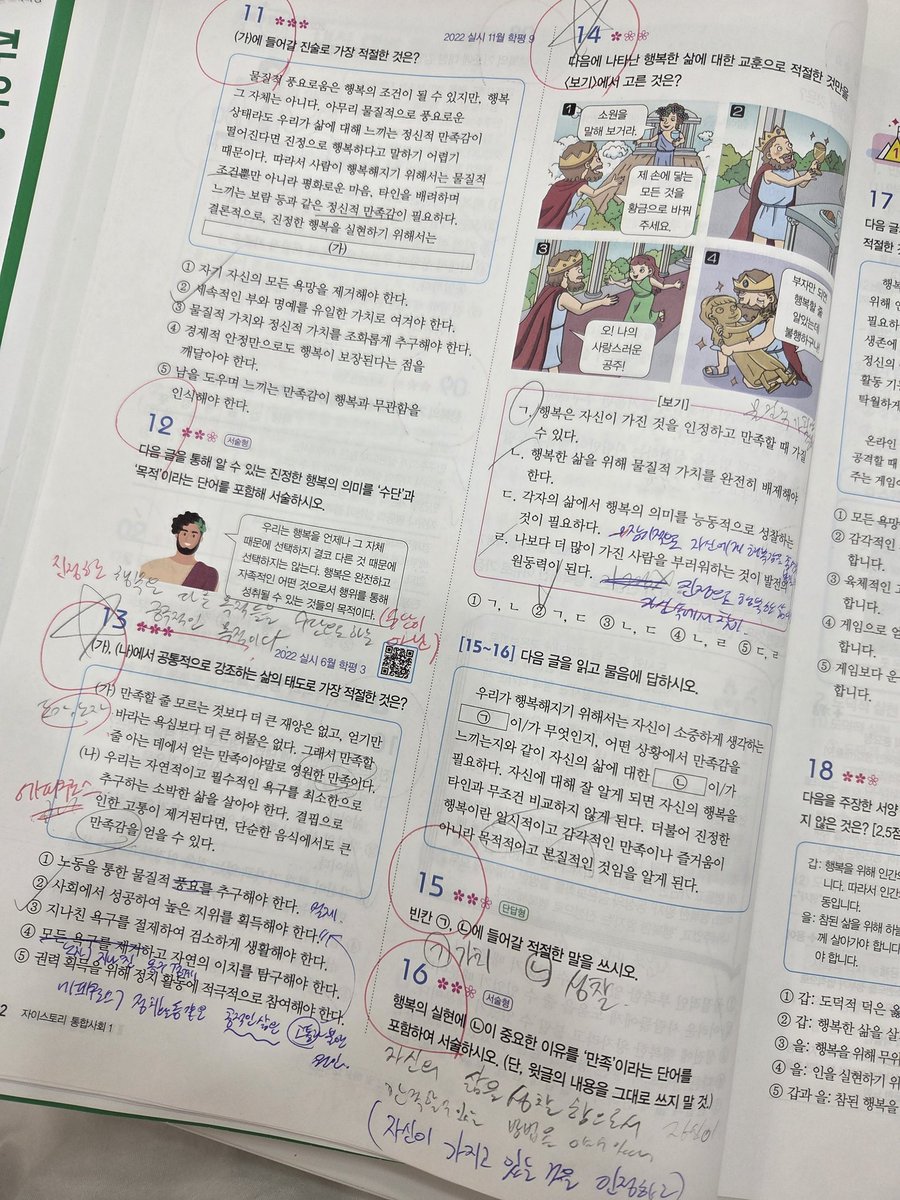 11
2022 실시 11월 학평 9
(가)에 들어갈 진술로 가장 적절한 것은?
물질적 풍요로움은 행복의 조건이 될 수 있지만, 행복
그 자체는 아니다. 아무리 물질적으로 풍요로운
상태라도 우리가 삶에 대해 느끼는 정신적 만족감이
떨어진다면 진정으로 행복하다고 말하기 어렵기
때문이다. 따라서 사람이 행복해지기 위해서는 물질적
조건뿐만 아니라 평화로운 마음, 타인을 배려하며
느끼는 보람 등과 같은 정신적 만족감이 필요하다.
결론적으로, 진정한 행복을 실현하기 위해서는
(가)
① 자기 자신의 모든 욕망을 제거해야 한다.
② 세속적인 부와 명예를 유일한 가치로 여겨야 한다.
③ 물질적 가치와 정신적 가치를 조화롭게 추구해야 한다.
④ 경제적 안정만으로도 행복이 보장된다는 점을
깨달아야 한다.
⑤ 남을 도우며 느끼는 만족감이 행복과 무관함을
인식해야 한다.
12 서술형
다음 글을 통해 알 수 있는 진정한 행복의 의미를 '수단'과
'목적'이라는 단어를 포함해 서술하시오.
우리는 행복을 언제나 그 자체
때문에 선택하지 결코 다른 것 때문에
선택하지는 않는다. 행복은 완전하고
자족적인 어떤 것으로서 행위를 통해
성취될 수 있는 것들의 목적이다.
진정하는 행복은 다른 목적들을 수단으로 하는
궁극적인 목적이다.
13
2022 실시 6월 학평 3
(가), (나)에서 공통적으로 강조하는 삶의 태도로 가장 적절한 것은?
(가) 만족할 줄 모르는 것보다 더 큰 재앙은 없고, 얻기만
바라는 욕심보다 더 큰 허물은 없다. 그래서 만족할
줄 아는 데에서 얻는 만족이야말로 영원한 만족이다.
(나) 우리는 자연적이고 필수적인 욕구를 최소한으로
추구하는 소박한 삶을 살아야 한다. 결핍으로
인한 고통이 제거된다면, 단순한 음식에서도 큰
만족감을 얻을 수 있다.
에피쿠로스
① 노동을 통한 물질적 풍요를 추구해야 한다.
② 사회에서 성공하여 높은 지위를 획득해야 한다.
③ 지나친 욕구를 절제하여 검소하게 생활해야 한다.
④ 모든 욕구를 제거하고 자연의 이치를 탐구해야 한다.
⑤ 권력 획득을 위해 정치 활동에 적극적으로 참여해야 한다.
2 자이스토리 통합사회 1
14
다음에 나타난 행복한 삶에 대한 교훈으로 적절한 것만을
<보기>에서 고른 것은?
1
소원을
말해 보거라.
제 손에 닿는
모든 것을
황금으로 바꿔
주세요.
2
3
오! 나의
사랑스러운
공주!
4
부자만 되면
행복할 줄
알았는데
불행하구나!
[보기]
ㄱ. 행복은 자신이 가진 것을 인정하고 만족할 때 가질
수 있다.
ㄴ. 행복한 삶을 위해 물질적 가치를 완전히 배제해야
한다.
ㄷ. 각자의 삶에서 행복의 의미를 능동적으로 성찰하는
것이 필요하다.
ㄹ. 나보다 더 많이 가진 사람을 부러워하는 것이 발전의
원동력이 된다.
① ㄱ, ㄴ ② ㄱ, ㄷ ③ ㄴ, ㄷ ④ ㄴ, ㄹ ⑤ ㄷ, ㄹ
[15~16] 다음 글을 읽고 물음에 답하시오.
우리가 행복해지기 위해서는 자신이 소중하게 생각하는
㉠ 이/가 무엇인지, 어떤 상황에서 만족감을
느끼는지와 같이 자신의 삶에 대한 ㉡ 이/가
필요하다. 자신에 대해 잘 알게 되면 자신의 행복을
타인과 무조건 비교하지 않게 된다. 더불어 진정한
행복이란 일시적이고 감각적인 만족이나 즐거움이
아니라 목적적이고 본질적인 것임을 알게 된다.
15 단답형
빈칸 ㉠, ㉡에 들어갈 적절한 말을 쓰시오.
㉠ 가치 ㉡ 성찰
16 서술형
행복의 실현에 ㉡이 중요한 이유를 '만족'이라는 단어를
포함하여 서술하시오. (단, 윗글의 내용을 그대로 쓰지 말 것)
자신의 삶을 성찰함으로서 자신이
만족할 수 있는 방법을
(자신이 가지고 있는 것을 인정하고)
17
다음 글
적절한 것
행복
위해 인
필요하
생존에
정신의
활동 기
탁월하게
온라인
공격할 때
주는 게임어
① 모든 욕망
② 감각적인
합니다.
③ 육체적인 고
합니다.
④ 게임으로 얻
합니다.
⑤ 게임보다 운
합니다.
18
다음을 주장한 서양
지 않은 것은? [2.5점
갑: 행복을 위해 인간의
니다. 따라서 인간
동입니다.
을: 참된 삶을 위해 하늘
께 살아가야 합니다
야 합니다.
① 갑: 도덕적 덕은 옳
② 갑: 행복한 삶을 살
③ 을: 행복을 위해 무위
④ 을: 인을 실현하기 위
⑤ 갑과 을: 참된 행복을